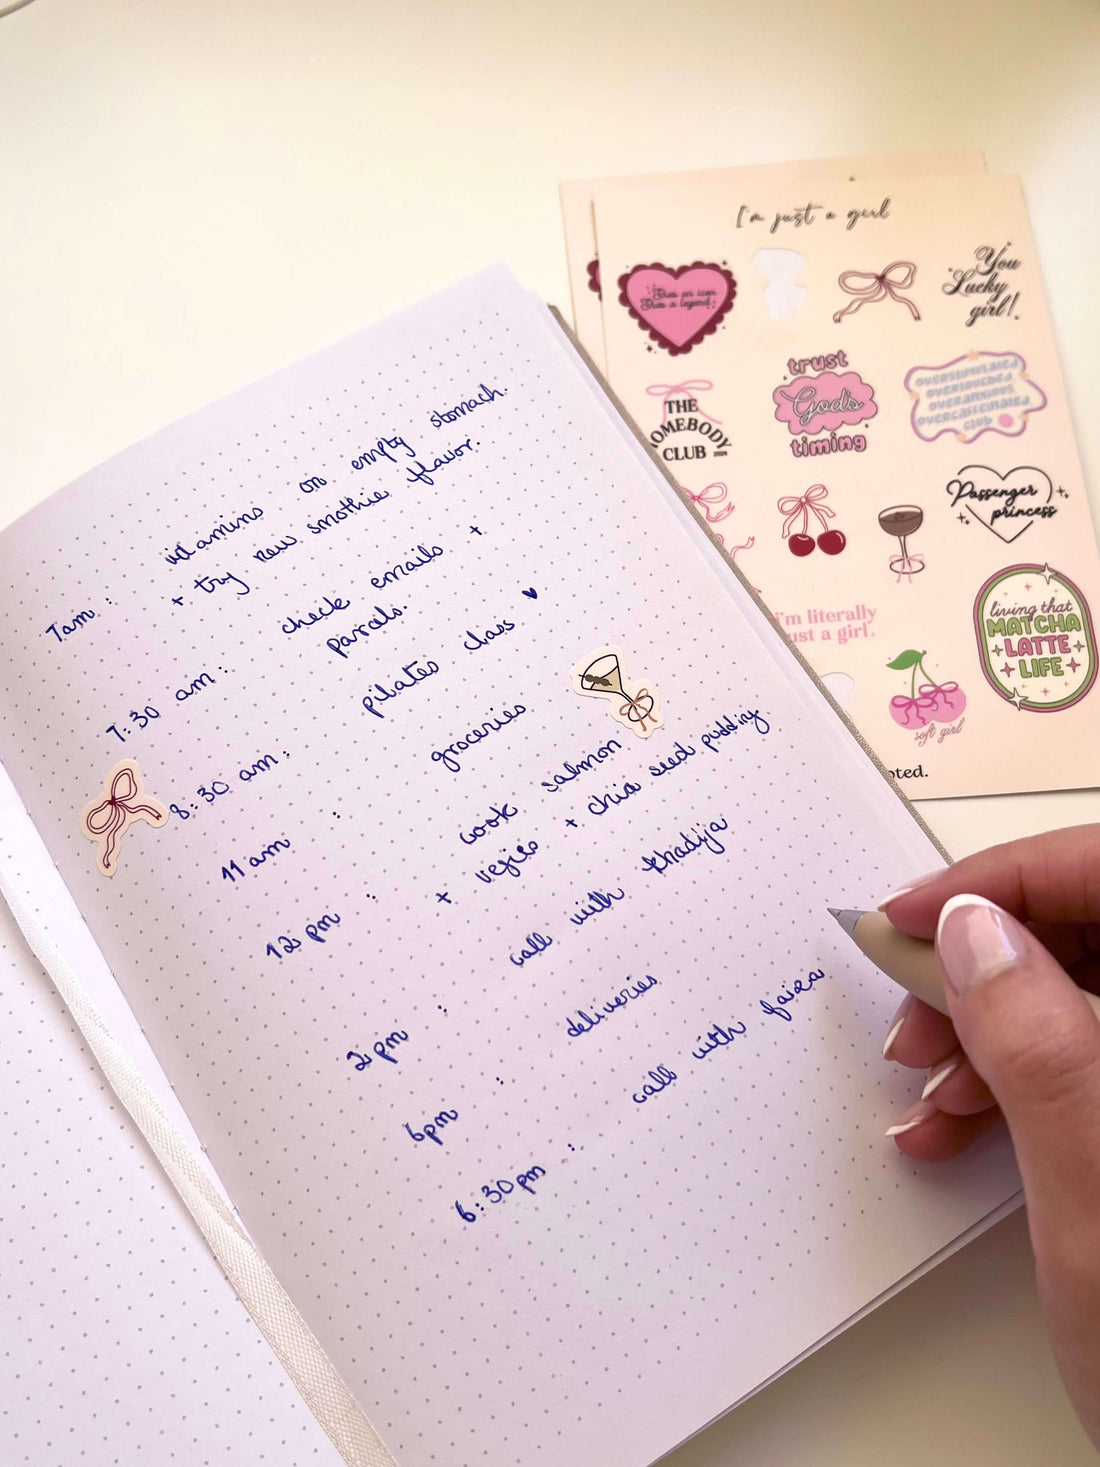 7am : vitamins on empty stomach.
+ try new smothie flavor.
7:30 am : check emails +
parcels.
8:30 am : pilates class ♥
11 am : groceries
12 pm : cook salmon
+ vejies + chia seed pudding
2 pm : call with khadija
6pm : deliveries
6:30 pm : call with faiza
I'm just a girl
She's an icon
She's a legend
You
Lucky
girl!
THE
HOMEBODY
CLUB 2024
trust
God's
timing
OVERSTIMULATED
OVERTOUCHED
OVERANXIOUS
OVERCAFFEINATED
CLUB
Passenger
princess
I'm literally
just a girl.
living that
MATCHA
LATTE
LIFE
soft girl
oted.